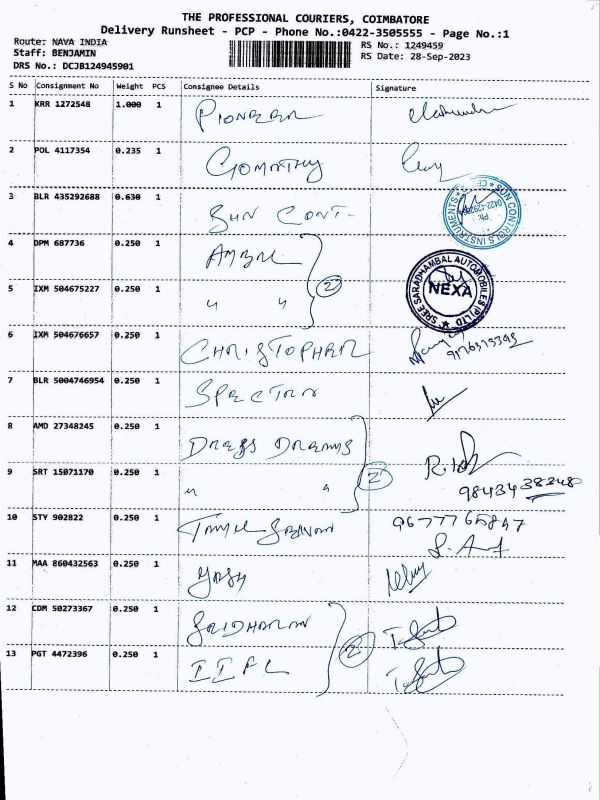 THE PROFESSIONAL COURIERS, COIMBATORE
Delivery Runsheet - PCP - Phone No.:0422-3505555 - Page No.:1
Route: NAVA INDIA RS No.: 1249459
Staff: BENJAMIN RS Date: 28-Sep-2023
DRS No.: DCJB124945901
S No Consignment No Weight PCS Consignee Details Signature
1 KRR 1272548 1.000 1 PIONEER
2 POL 4117354 0.235 1 GOMATHY
3 BLR 435292688 0.630 1 SUN CONT-
SUN CONTROLS INSTRUMENTS
4 DPM 687736 0.250 1 AMBAL
5 IXM 504675227 0.250 1 " " 2
SREE SARADHAMBAL AUTOMOBILES (P) LTD
NEXA
6 IXM 504676657 0.250 1 CHRISTOPHER
7 BLR 5004746954 0.250 1 SPECTRA
8 AMD 27348245 0.250 1 DRESS DREAMS
9 SRT 15071170 0.250 1 " " 2 9843438248
10 STY 902822 0.250 1 9677765847
11 MAA 860432563 0.250 1 YASH
12 CDM 50273367 0.250 1 SRIDHARAN
13 PGT 4472396 0.250 1 IIFL 2